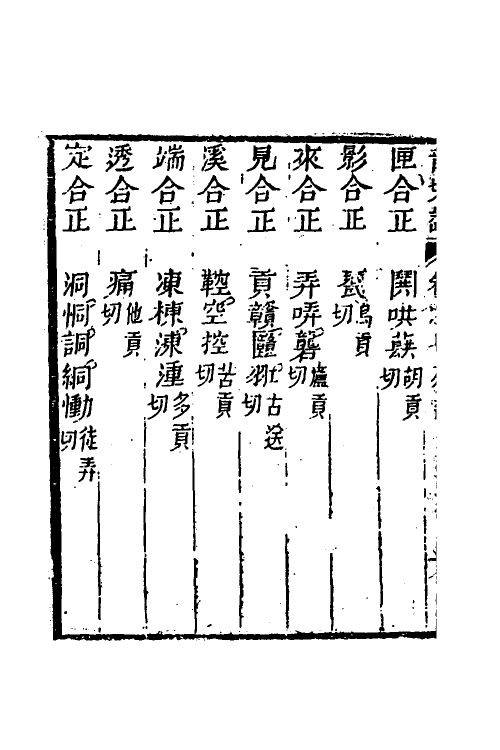 匣合正 鬨哄蕻胡貢切
影合正 瓮烏貢切
來合正 弄哢礱盧貢切
見合正 貢贛古送切
溪合正 鞚空控苦貢切
端合正 凍棟涷湩多貢切
透合正 痛他貢切
定合正 洞恫詷絧慟徒弄切